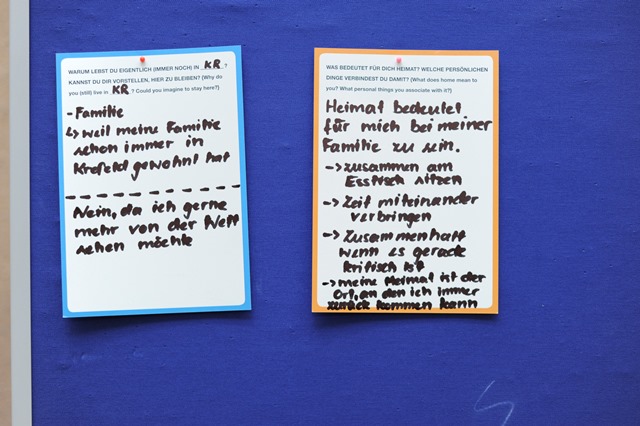 WARUM LEBST DU EIGENTLICH (IMMER NOCH) IN KR ?
KANNST DU DIR VORSTELLEN, HIER ZU BLEIBEN? (Why do
you (still) live in KR ? Could you imagine to stay here?)
- Familie
↳ weil meine Familie
schon immer in
Krefeld gewohnt hat
Nein, da ich gerne
mehr von der Welt
sehen möchte
WAS BEDEUTET FÜR DICH HEIMAT? WELCHE PERSÖNLICHEN
DINGE VERBINDEST DU DAMIT? (What does home mean to
you? What personal things you associate with it?)
Heimat bedeutet
für mich bei meiner
Familie zu sein.
-> zusammen am
Esstisch sitzen
-> Zeit miteinander
verbringen
-> Zusammenhalt
wenn es gerade
kritisch ist
-> meine Heimat ist der
Ort, an den ich immer
zurück kommen kann